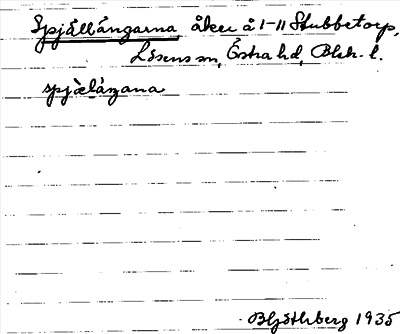 Spjällängarna åker å 1-11 Stubbetorp,
Lösens sn, Östra hd, Blek. l.
spjæláŋana
Bhj Öthberg 1935